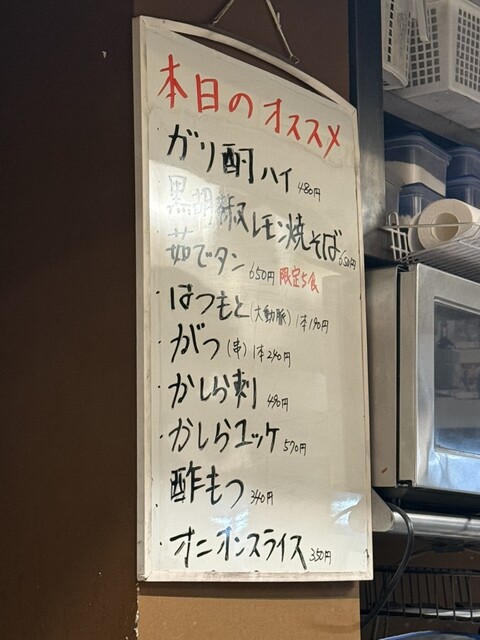 本日のオススメ
ガリ酎ハイ 480円
黒胡椒レモン焼そば 650円
茹でタン 650円 限定5食
はつもと(大動脈) 1本190円
がつ(串) 1本240円
かしら刺 490円
かしらユッケ 570円
酢もつ 340円
オニオンスライス 350円